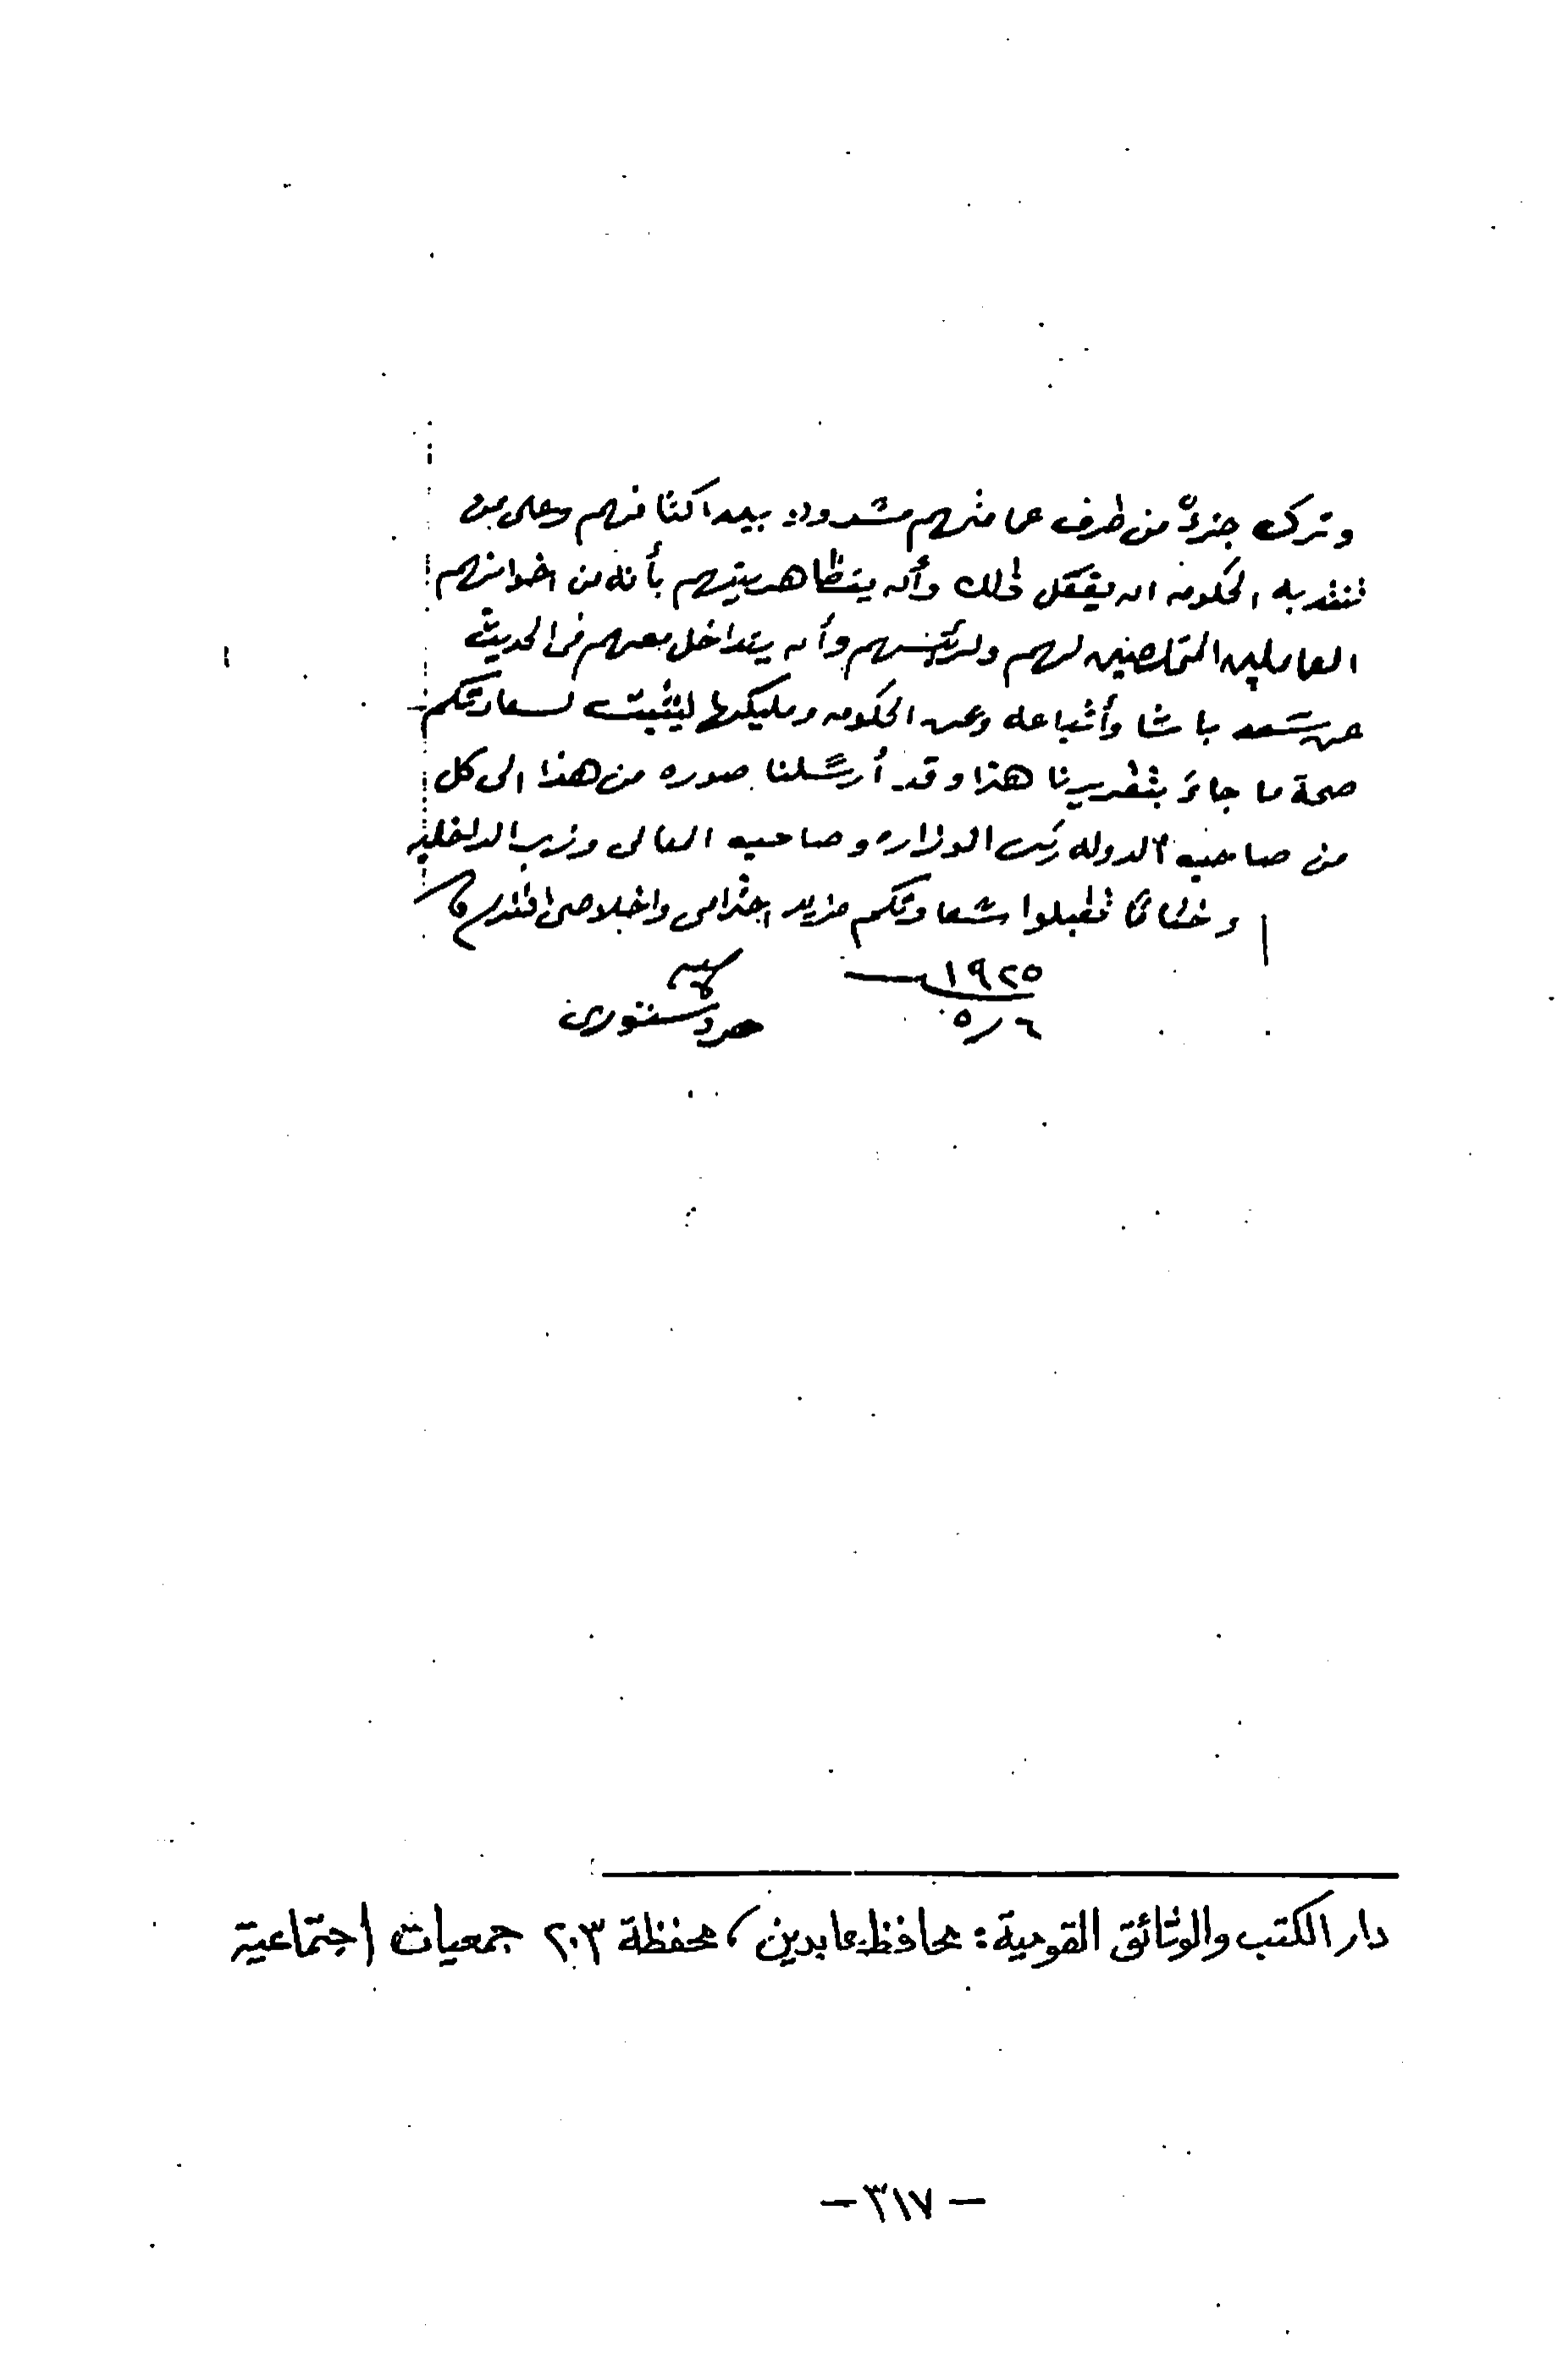 وترك جزءً من طرف عمامتهم مشدود بين اكتافهم وعلى من
تنتدبه الحكومه ان يفعل ذلك وأن يتظاهر بينهم بأنه من اخوانهم
العاملين المخلصين لهم ولرئيسهم وأن يتداخل معهم فى الحديث
عن سعد باشا وأتباعه وعن الحكومه ومليكها ليثبت لسعادتكم
صحة ما جاء بتقريرنا هذا وقد أرسلنا صوره من هذا الى كل
من صاحب الدوله رئيس الوزاره وصاحب المعالى وزير الداخليه
وختاما تقبلوا سعادتكم مزيد احترامى واخلاصى افندم
١٩٢٥
٥/٦
حر دستورى
دار الكتب والوثائق القومية: محافظ عابدين، محفظة ٢٠٣ جمعيات اجتماعية
- ٣١٧ -